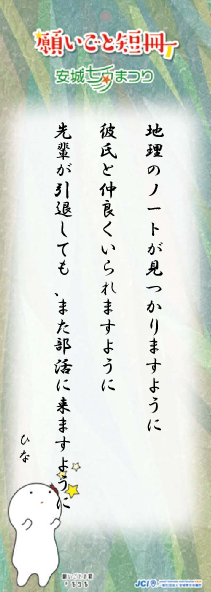 願いごと短冊
安城七夕まつり
地理のノートが見つかりますように
彼氏と仲良くいられますように
先輩が引退しても、また部活に来ますように
ひな
JCI